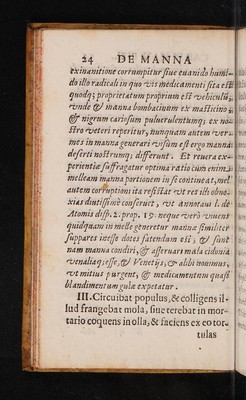 24 DE MANNA
exinanitione corrumpitur siue euanido humi-
do illo radicali in quo vis medicamenti sita est
quodq; proprietatum proprium est vehiculū;
vnde & manna bombacinum ex masticino
& nigrum cariosum puluerulentumq; ex no-
stro veteri reperitur, nunquam autem ver-
mes in manna generari visum est ergo manna
deserti nostrumq; differunt. Et reuera ex-
perientiæ suffragatur optima ratio cùm enim
melleam manna portionem in se contineat, mel
autem corruptioni ita resistat vt res illi obno-
xias diutissimè conseruet, vt annotaui l. de
Atomis disp. 2. prop. 19. neque verò vnuent
quidquam in melle generetur manna similiter
suppares inesse dotes fatendum est; & sunt
nam manna condiri, & asseruari mala cidonia
venaliaq; esse, & Venetijs, & alibi inuimus,
vt mitius purgent, & medicamentum quasi
blandimentum gulæ expetatur.
III. Circuibat populus, & colligens il-
lud frangebat mola, siue terebat in mor-
tario coquens in olla, & faciens ex eo tor-
tulas